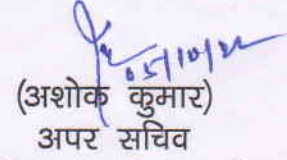 05/10/22
(अशोक कुमार)
अपर सचिव